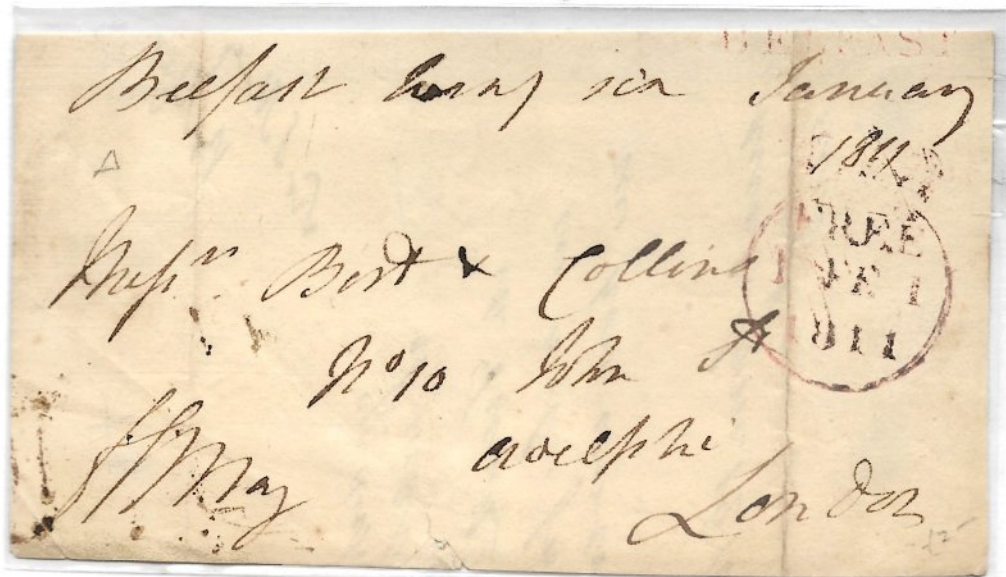 BELFAST
Belfast twenty six January
1811
FREE
FE 1
1811
Messrs Bort & Collins
No 10 John St
adelphi
London
May